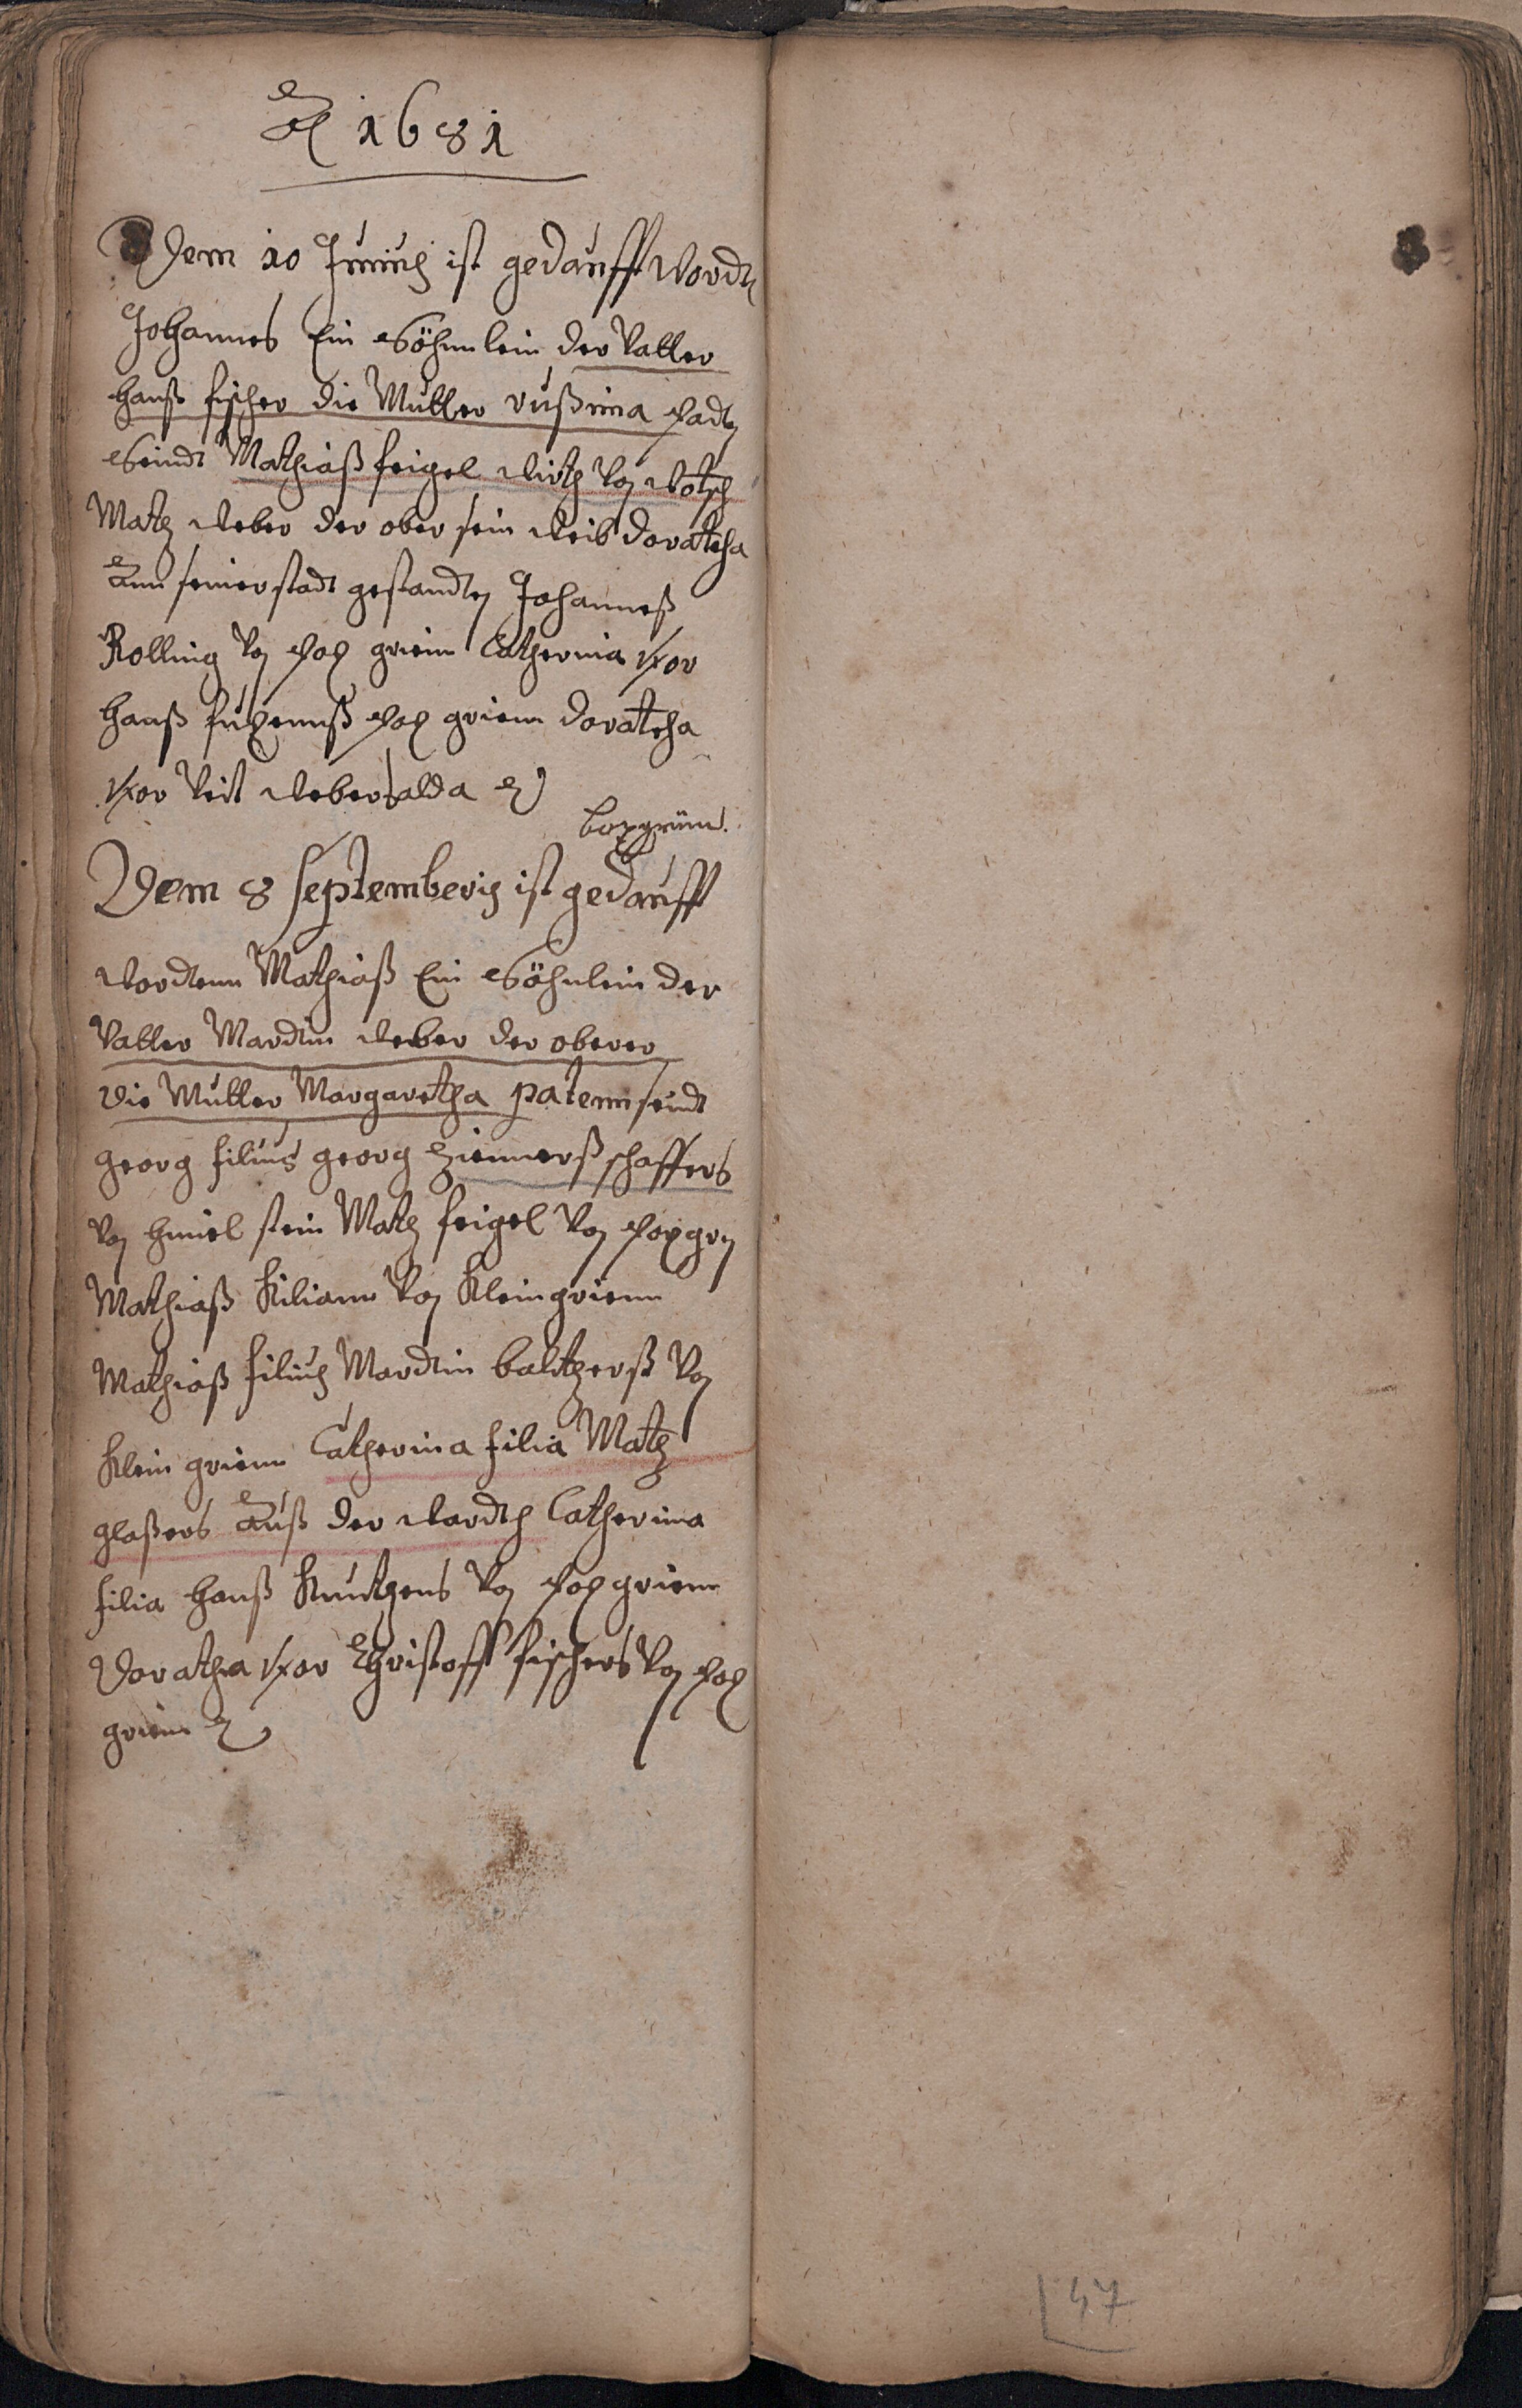 A 1681
Dem 10 Junius ist gedaufft Wordn
Johannes Ein Söhnnlein der Vatter
Hanß fischer die Mutter Rußina Padn
Seindt Mathiaß feigel Wirth Von Wotsch
Matz Weber der ober sein Weib Doratha
ann seiner stadt gestandten Johanneß
Rolling Von Pox griem Catherina uxor
Hanß Pox griem Doratha
uxor Veit Webers alda
boxgrün.
Dem 8 Septemberis ist gedaufft
Wordtenn Mathiaß Ein Söhnlein der
Vatter Mardtin Weber der oberer
die Mutter Margaretha patenn seindt
georg filius georg Ziennerß schaffers
Von Himelstein Matz feigel Von Poxgrn
Mathiaß Kiliann Von Kleingrienn
Mathiaß filius Mardtin baltzerß Von
Klein grienn Catherina filia Matz
glaßers auß der Wardth Catherina
filia Hanß Kuntzens Von Poxgriem
Doratha uxor Christoff fischers Von Pox
griem
47